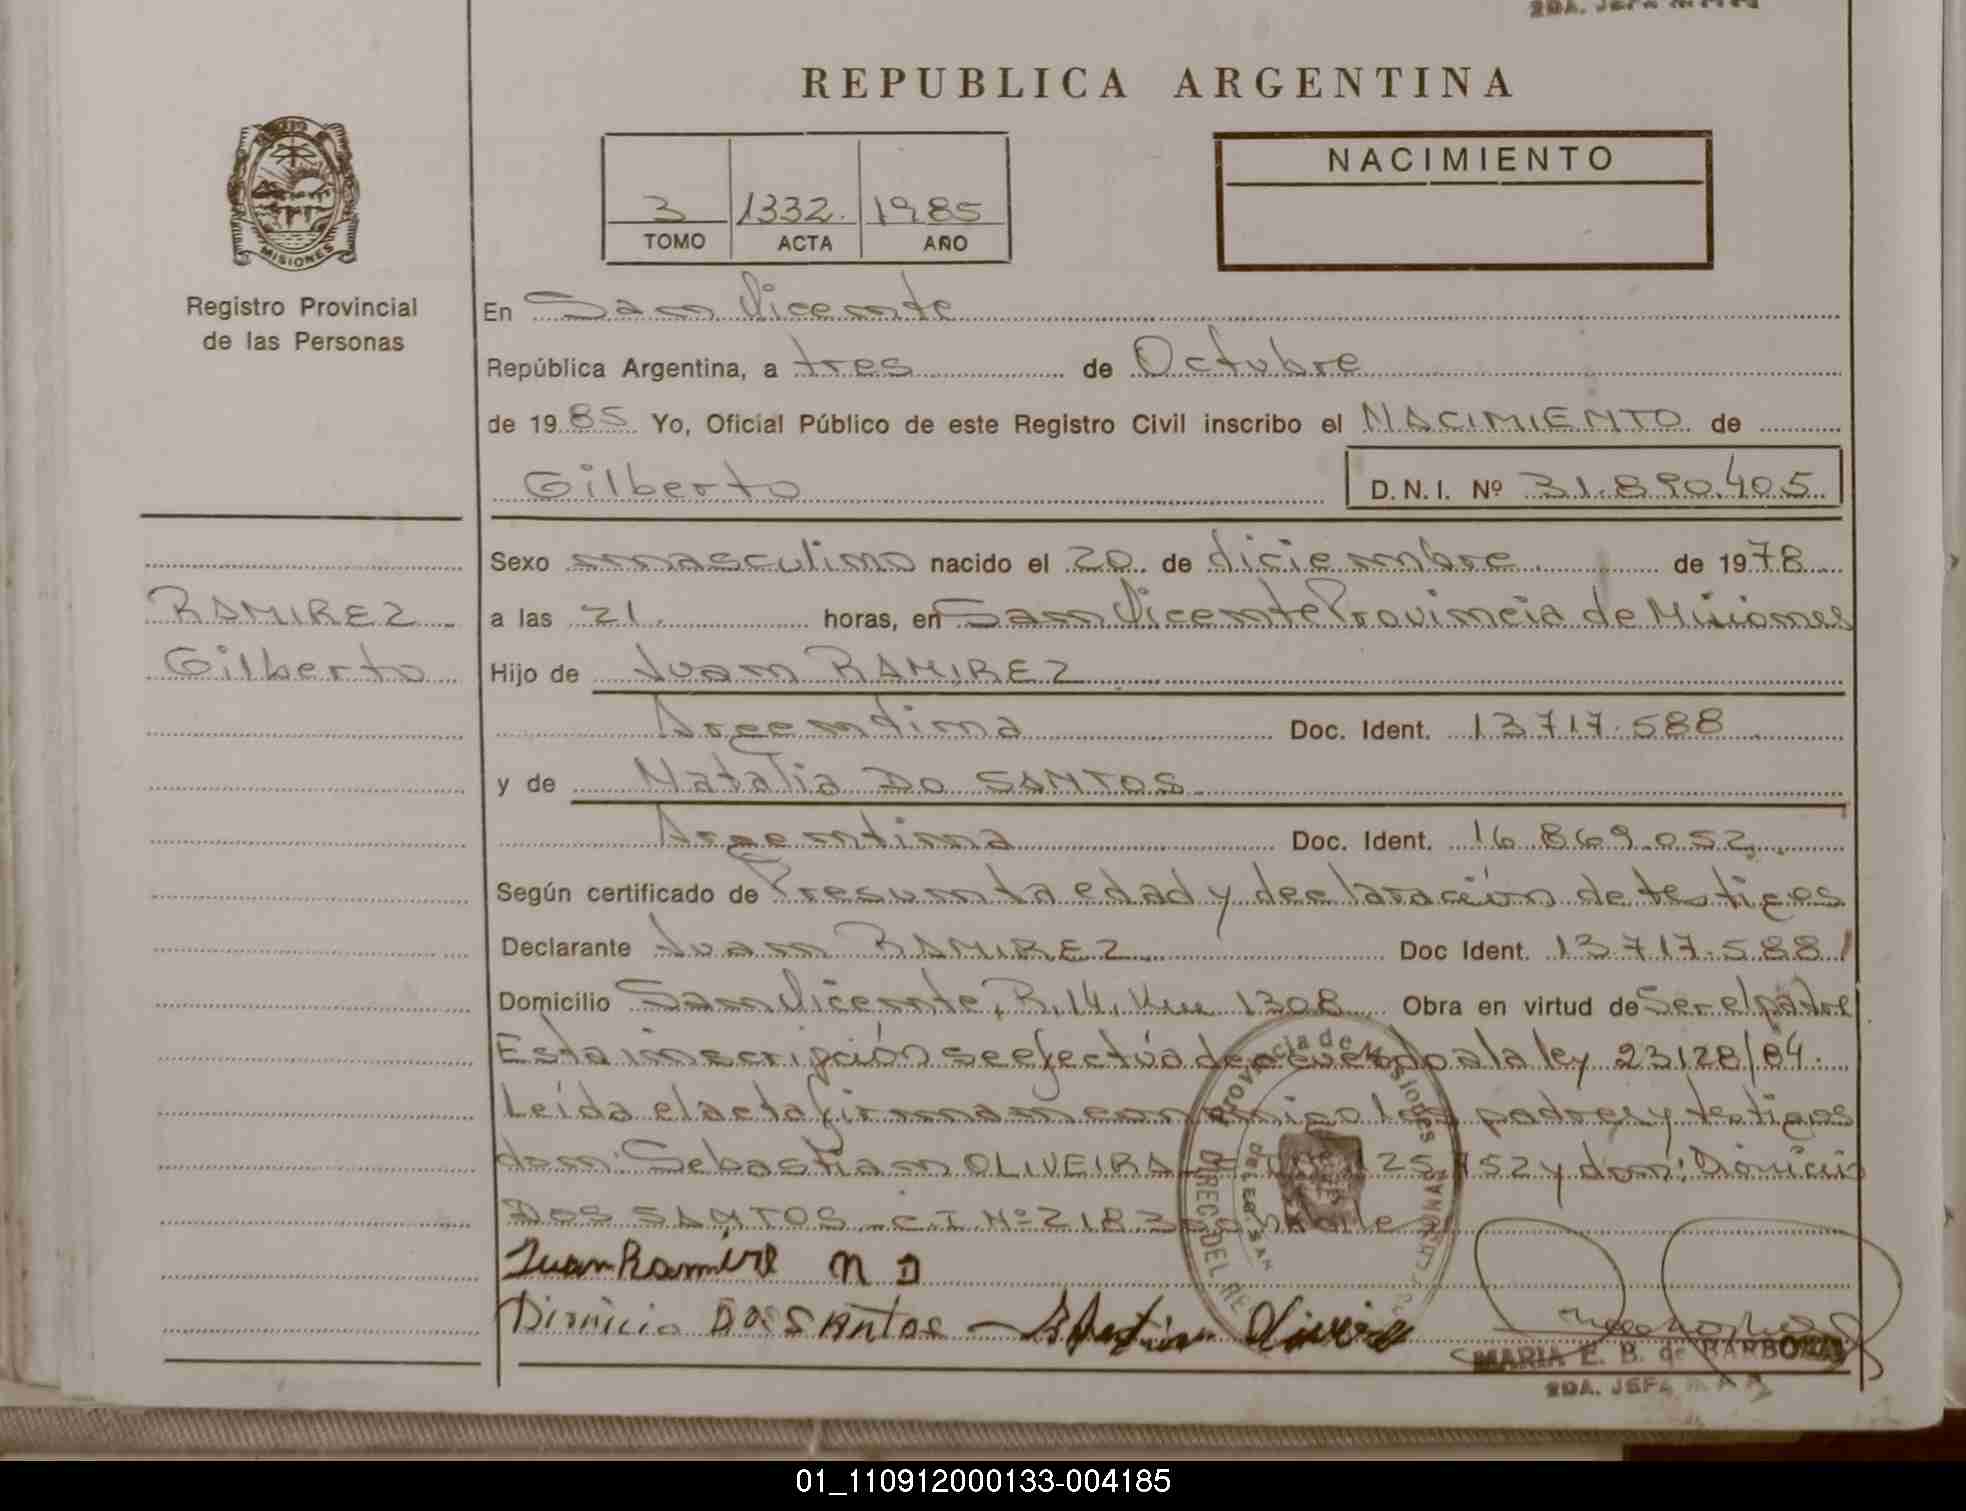 2DA. JEFA
REPUBLICA ARGENTINA
MISIONES
Registro Provincial
de las Personas
3 1332. 1985
TOMO ACTA AÑO
NACIMIENTO
En San Vicente
República Argentina, a tres de Octubre
de 1985 Yo, Oficial Público de este Registro Civil inscribo el NACIMIENTO de
Gilberto D.N.I. Nº 31.890.405
RAMIREZ
Gilberto
Sexo masculino nacido el 20 de diciembre de 1978
a las 21. horas, en San Vicente Provincia de Misiones
Hijo de Juan RAMIREZ
Argentina Doc. Ident. 13.717.588
y de Natalia DO SANTOS
Argentina Doc. Ident. 16.869.052
Según certificado de Presunta edad y declaración de testigos
Declarante Juan RAMIREZ Doc Ident. 13.717.588
Domicilio San Vicente, R.14, Km 1308 Obra en virtud de Ser el padre
Esta inscripción se efectúa de acuerdo a la ley 23128/84.
Leída el acta firman conmigo los padres y testigos
don: Sebastian OLIVEIRA y don: Dionicio
DOS SANTOS C.I Nº 2183
Juan Ramirez N D
Dionicio DOS SANTOS Oliveira
Provincia de Misiones
MARIA E. B. de BARBOZA
2DA. JEFA
01_110912000133-004185